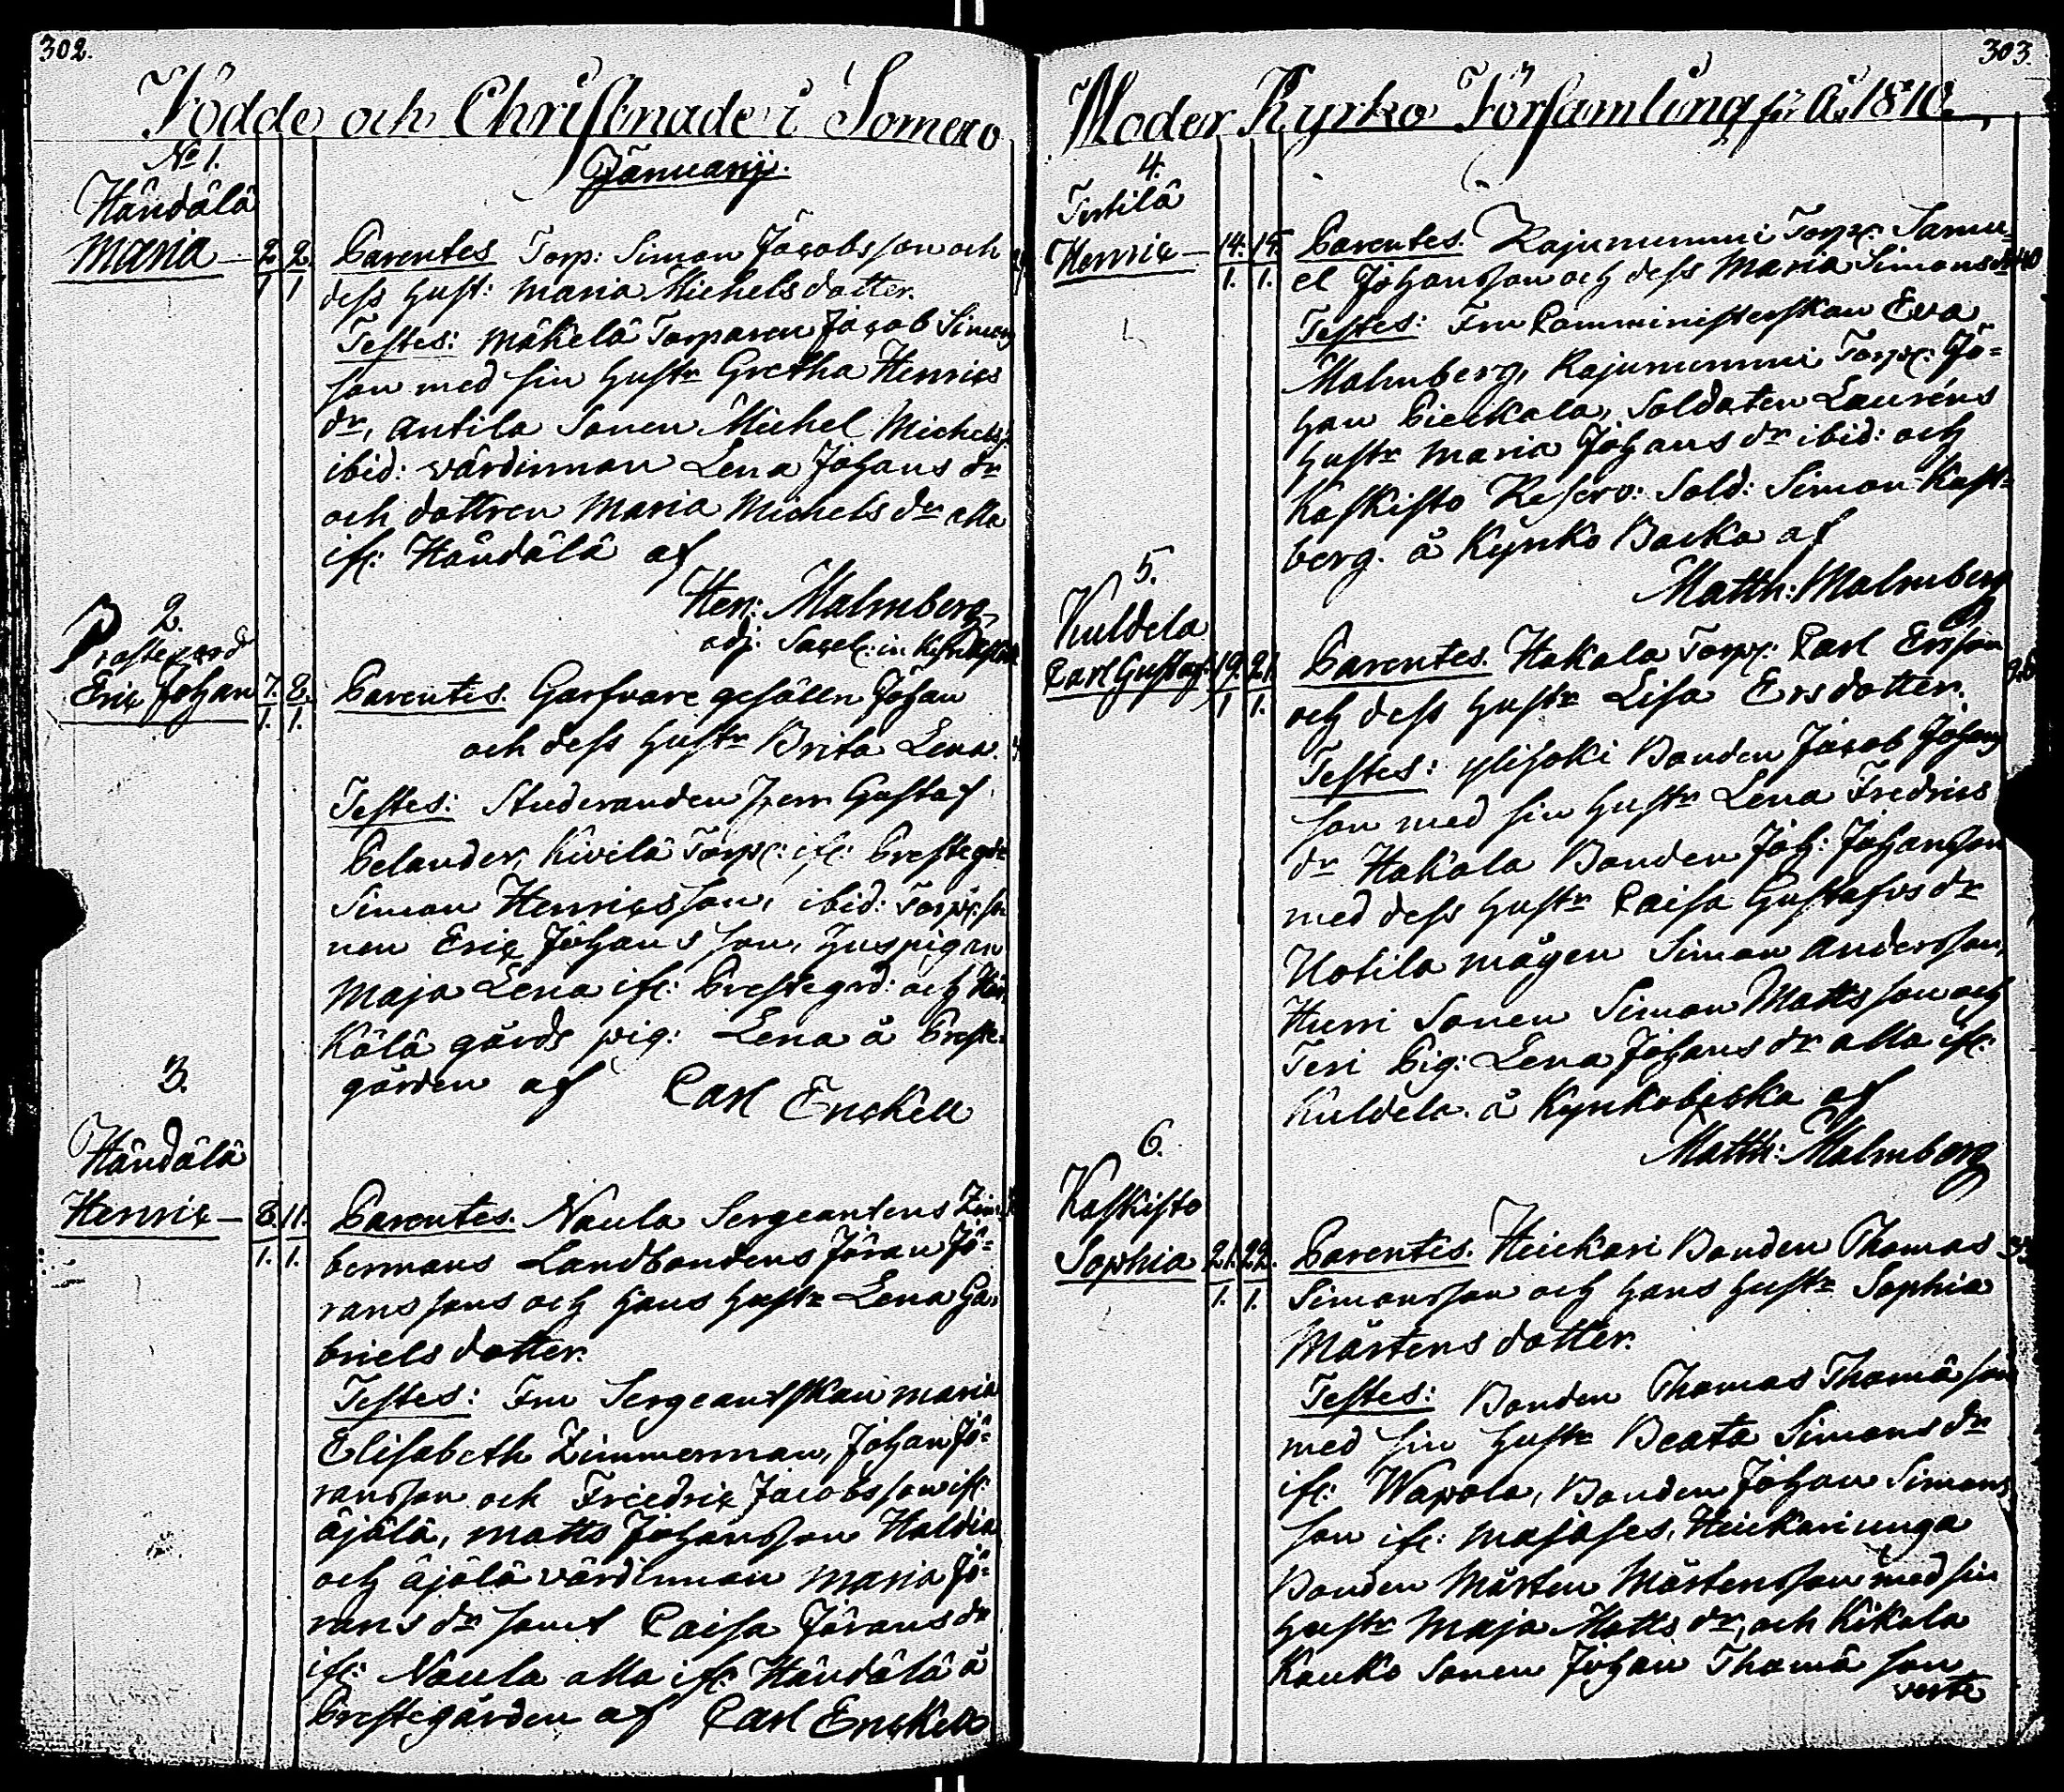 302.
Födde och Christnade i Somero
Januarij.
No 1.
Håndälä
Maria — 2/1 2/1
Parentes Torp: Simon Jacobsson och
dess hust: Maria Michelsdotter.
Testes: Mäkelä Torparen Jacob Simons
son med sin hustr Gretha Henrics
dr, Antila Sonen Michel Michelss:
ibid: värdinnan Lena Johans dr
och dottren Maria Michels dr alla
ifr: Håndälä af
Hen: Malmberg
adj. Sacel: in
2.
Prästegård
Eric Johan 7/1 8/1
Parentes. Garfvare gesälln Johan
och dess hustr Brita Lena.
Testes: Studeranden Herr Gustaf
Pelander, Kivilä Torpr: ifr: Prestegrd
Simon Henricsson, ibid: Torpr: so
nen Eric Johansson, huspigan
Maja Lena ifr: Prestegrd: och
Kälä gårds pig: Lena å Preste
gården af Carl Enckell
3.
Håndälä
Henric — 8/1 11/1
Parentes. Naula Sergeantens Zim
bermans Landbondens Jöran Jö=
ranssons och hans hustr Lena Ga
briels dotter.
Testes: Fru Sergeantskan Maria
Elisabeth Zimmerman, Johan Jö=
ransson och Friedric Jacobsson ifr:
Äjälä, Matts Johansson Haldia
och Äjälä värdinnan Maria Jö=
rans dr samt Caisa Jörans dr
ifr: Naula alla ifr: Håndälä å
Prestegården af Carl Enckell
303.
Moder Kyrko Församling för År 1810.
4.
Tertilä
Henric — 14/1 15/1
Parentes. Rajunummi Torpr: Samu=
el Johansson och dess Maria Simonsdr 40
Testes: Fru Comministerskan Eva
Malmberg, Rajunummi Torpr: Jo=
han Pietkala, Soldaten Lauréns
hustr Maria Johans dr ibid: och
Kaskisto Reserv: Sold: Simon Kast=
berg. å Kyrko Backa af
Matth: Malmberg
5.
Kuldela
Carl Gustaf 19/1 21/1
Parentes. Hakala Torpr: Carl Ersson
och dess hustr Lisa Ersdotter.
Testes: Ylisoki Bonden Jacob Johans
son med sin hustr Lena Fredrics
dr Hakala Bonden Joh: Johansson
med dess hustr Caisa Gustafvs dr
Uotila mågen Simon Andersson,
Hurri Sonen Simon Mattsson och
Teri Pig: Lena Johans dr alla ifr:
Kuldela. å Kyrkobacka af
Matth: Malmberg
6.
Kaskisto
Sophia 21/1 22/1
Parentes. Heickari Bonden Thomas 33
Simonsson och hans hustr Sophia
Mårtens dotter.
Testes: Bonden Thomas Thomä son
med sin hustr Beata Simons dr
ifr: Wapola, Bonden Johan Simons
son ifr: Majases, Heickari unga
Bonden Mårten Mårtensson med sin
hustr Maja Matts dr, och Kikala
Kauko Sonen Johan Thomä son
verte